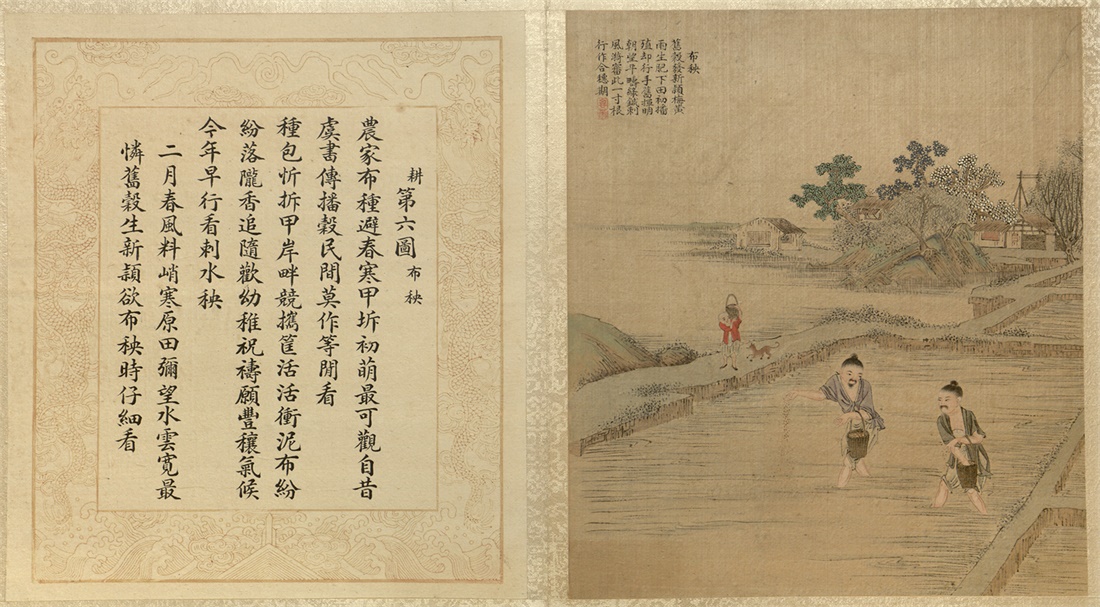 布秧
舊穀發新頴梅黃
雨生肥下田初播
殖却行手奮揮明
朝望平疇綠鍼刺
風漪審此一寸根
行作合穗期
耕第六圖布秧
農家布種避春寒甲坼初萌最可觀自昔
虞書傳播穀民間莫作等閒看
種包忻拆甲岸畔競攜筐活活衝泥布紛
紛落隴香追隨歡幼稚祝禱願豐穰氣候
今年早行看刺水秧
二月春風料峭寒原田彌望水雲寬最
憐舊穀生新頴欲布秧時仔細看